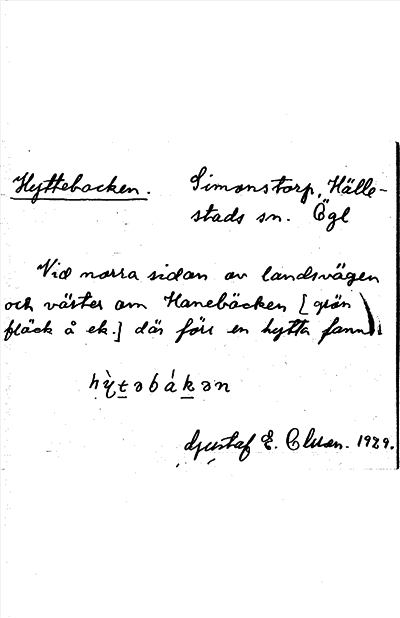 Hyttebacken. Simonstorp, Hälle-
stads sn. Ögl
Vid norra sidan av landsvägen
och väster om Hanebäcken [grön
fläck å ek.] där förr en hytta fanns
hỳt̲əbák̲ən
Gustaf E. Olsson. 1929.